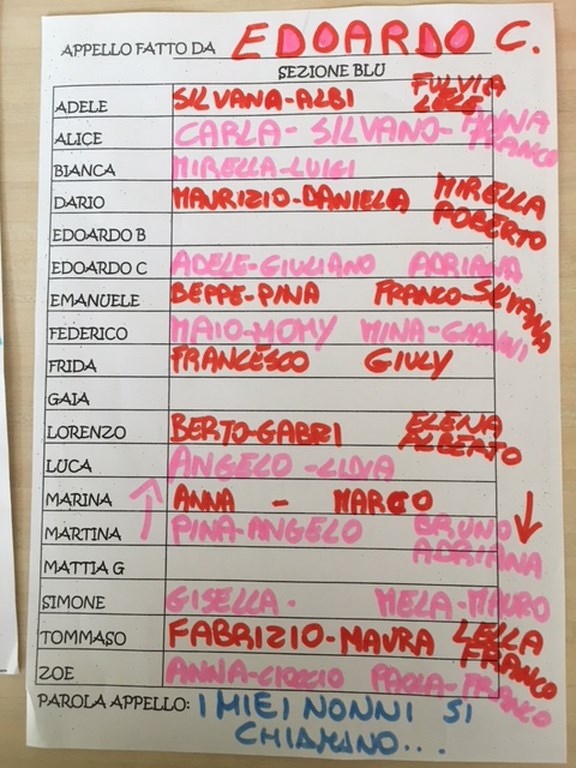 APPELLO FATTO DA EDOARDO C.
SEZIONE BLU
ADELE SILVANA-ALBI FULVIA
ALICE CARLA- SILVANO- ANNA FRANCO
BIANCA MIRELLA-LUIGI
DARIO MAURIZIO-DANIELA MIRELLA ROBERTO
EDOARDO B
EDOARDO C ADELE-GIULIANO ADRIANA
EMANUELE BEPPE-PINA FRANCO-SILVANA
FEDERICO MAIO-MOMY MINA-GIANNI
FRIDA FRANCESCO GIULY
GAIA
LORENZO BERTO-GABRI ELENA ALBERTO
LUCA ANGELO -LIDIA
MARINA ANNA - MARCO
MARTINA PINA-ANGELO BRUNO ADRIANA
MATTIA G
SIMONE GISELLA. MELA-MAURO
TOMMASO FABRIZIO-MAURA LELLA FRANCO
ZOE ANNA-CICCIO PAOLA-FRANCO
PAROLA APPELLO: I MIEI NONNI SI
CHIAMANO...